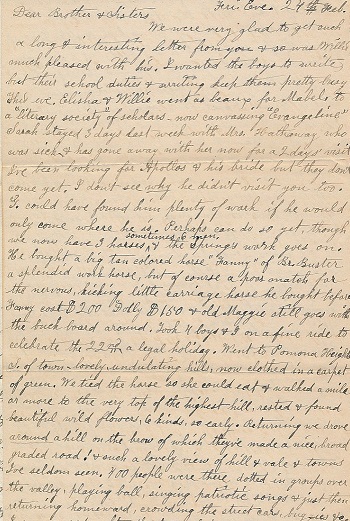 Fri. Eve. 24th Feb.
Dear Brother & Sisters
We were very glad to get such
a long & interesting letter from you & so was Willie
much pleased with his. I wanted the boys to write
but their school duties & writing keep them pretty busy
This eve. Elisha & Willie went as beaux for Mabel to
a "literary society" of scholars - now canvassing "Evangeline"
Sarah stayed 3 days last week with Mrs. Hathaway who
was sick & has gone away with her now for a 2 days' visit
I've been looking for Apollos & his bride but they don't
come yet. I don't see why he didn't visit you too.
G. could have found him plenty of work if he would
only come where he is. Perhaps can do so yet, though
sometimes & more,
we now have 3 horses, & the Springs work goes on.
He bought a big tan colored horse "Fanny" of Br. Buster
a splendid work horse, but of course a poor mate for
the nervous, kicking little carriage horse he bought before
Fanny cost $200 Dolly $150 & old Maggie still goes with
the buck board around. Took 4 boys & I on a fine ride to
celebrate the 22nd, a legal holiday. Went to Pomona Heights
S. of town - lovely undulating hills, now clothed in a carpet
of green. We tied the horse so she could eat & walked a mile
or more to the very top of the highest hill, rested & found
beautiful wild flowers, 6 kinds, so early. Returning we drove
around a hill on the brow of which they've made a nice, broad
graded road! & such a lovely view of hill & vale & towns
I've seldom seen. 400 people were there dotted in groups over
the valley, playing ball, singing patriotic songs & just then
returning homeward, crowding the street cars,